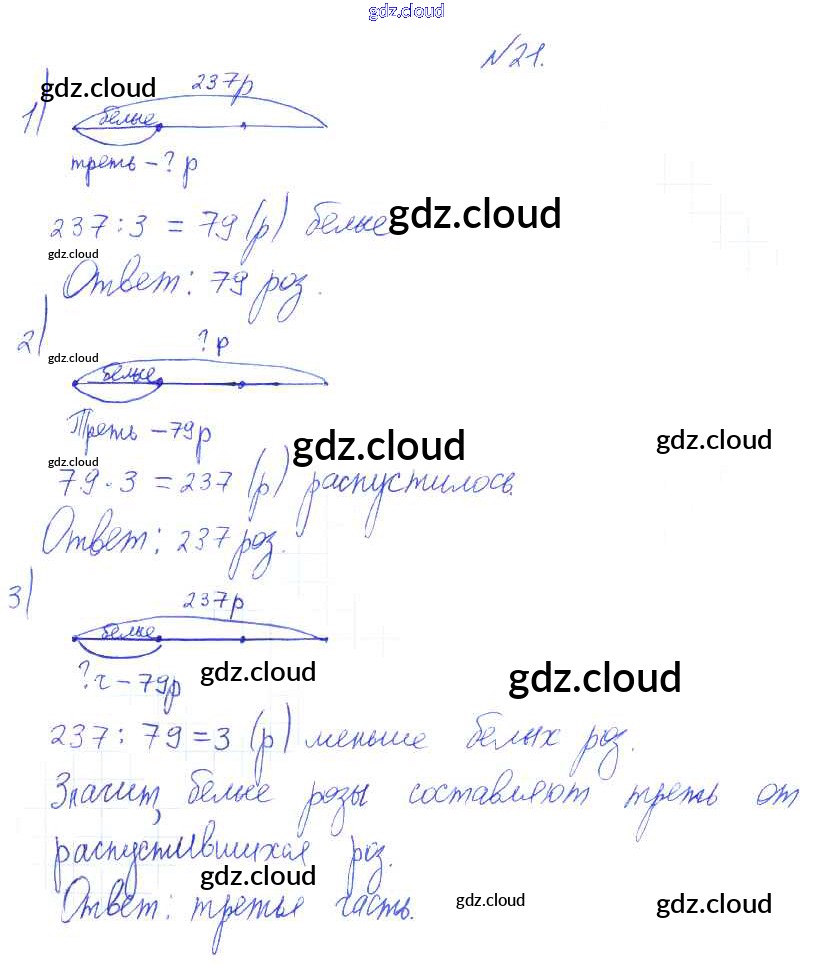 gdz.cloud
№21.
gdz.cloud
1) 237р
белые
треть - ? р
237 : 3 = 79 (р) белые gdz.cloud
gdz.cloud
Ответ: 79 роз.
2) ? р
gdz.cloud
белые
Треть - 79р
gdz.cloud gdz.cloud
gdz.cloud
79 · 3 = 237 (р) распустилось.
Ответ: 237 роз.
3) 237р
белые
?ч - 79р gdz.cloud gdz.cloud
237 : 79 = 3 (р) меньше белых роз.
Значит, белые розы составляют треть от
распустившихся роз.
gdz.cloud
Ответ: третья часть. gdz.cloud gdz.cloud